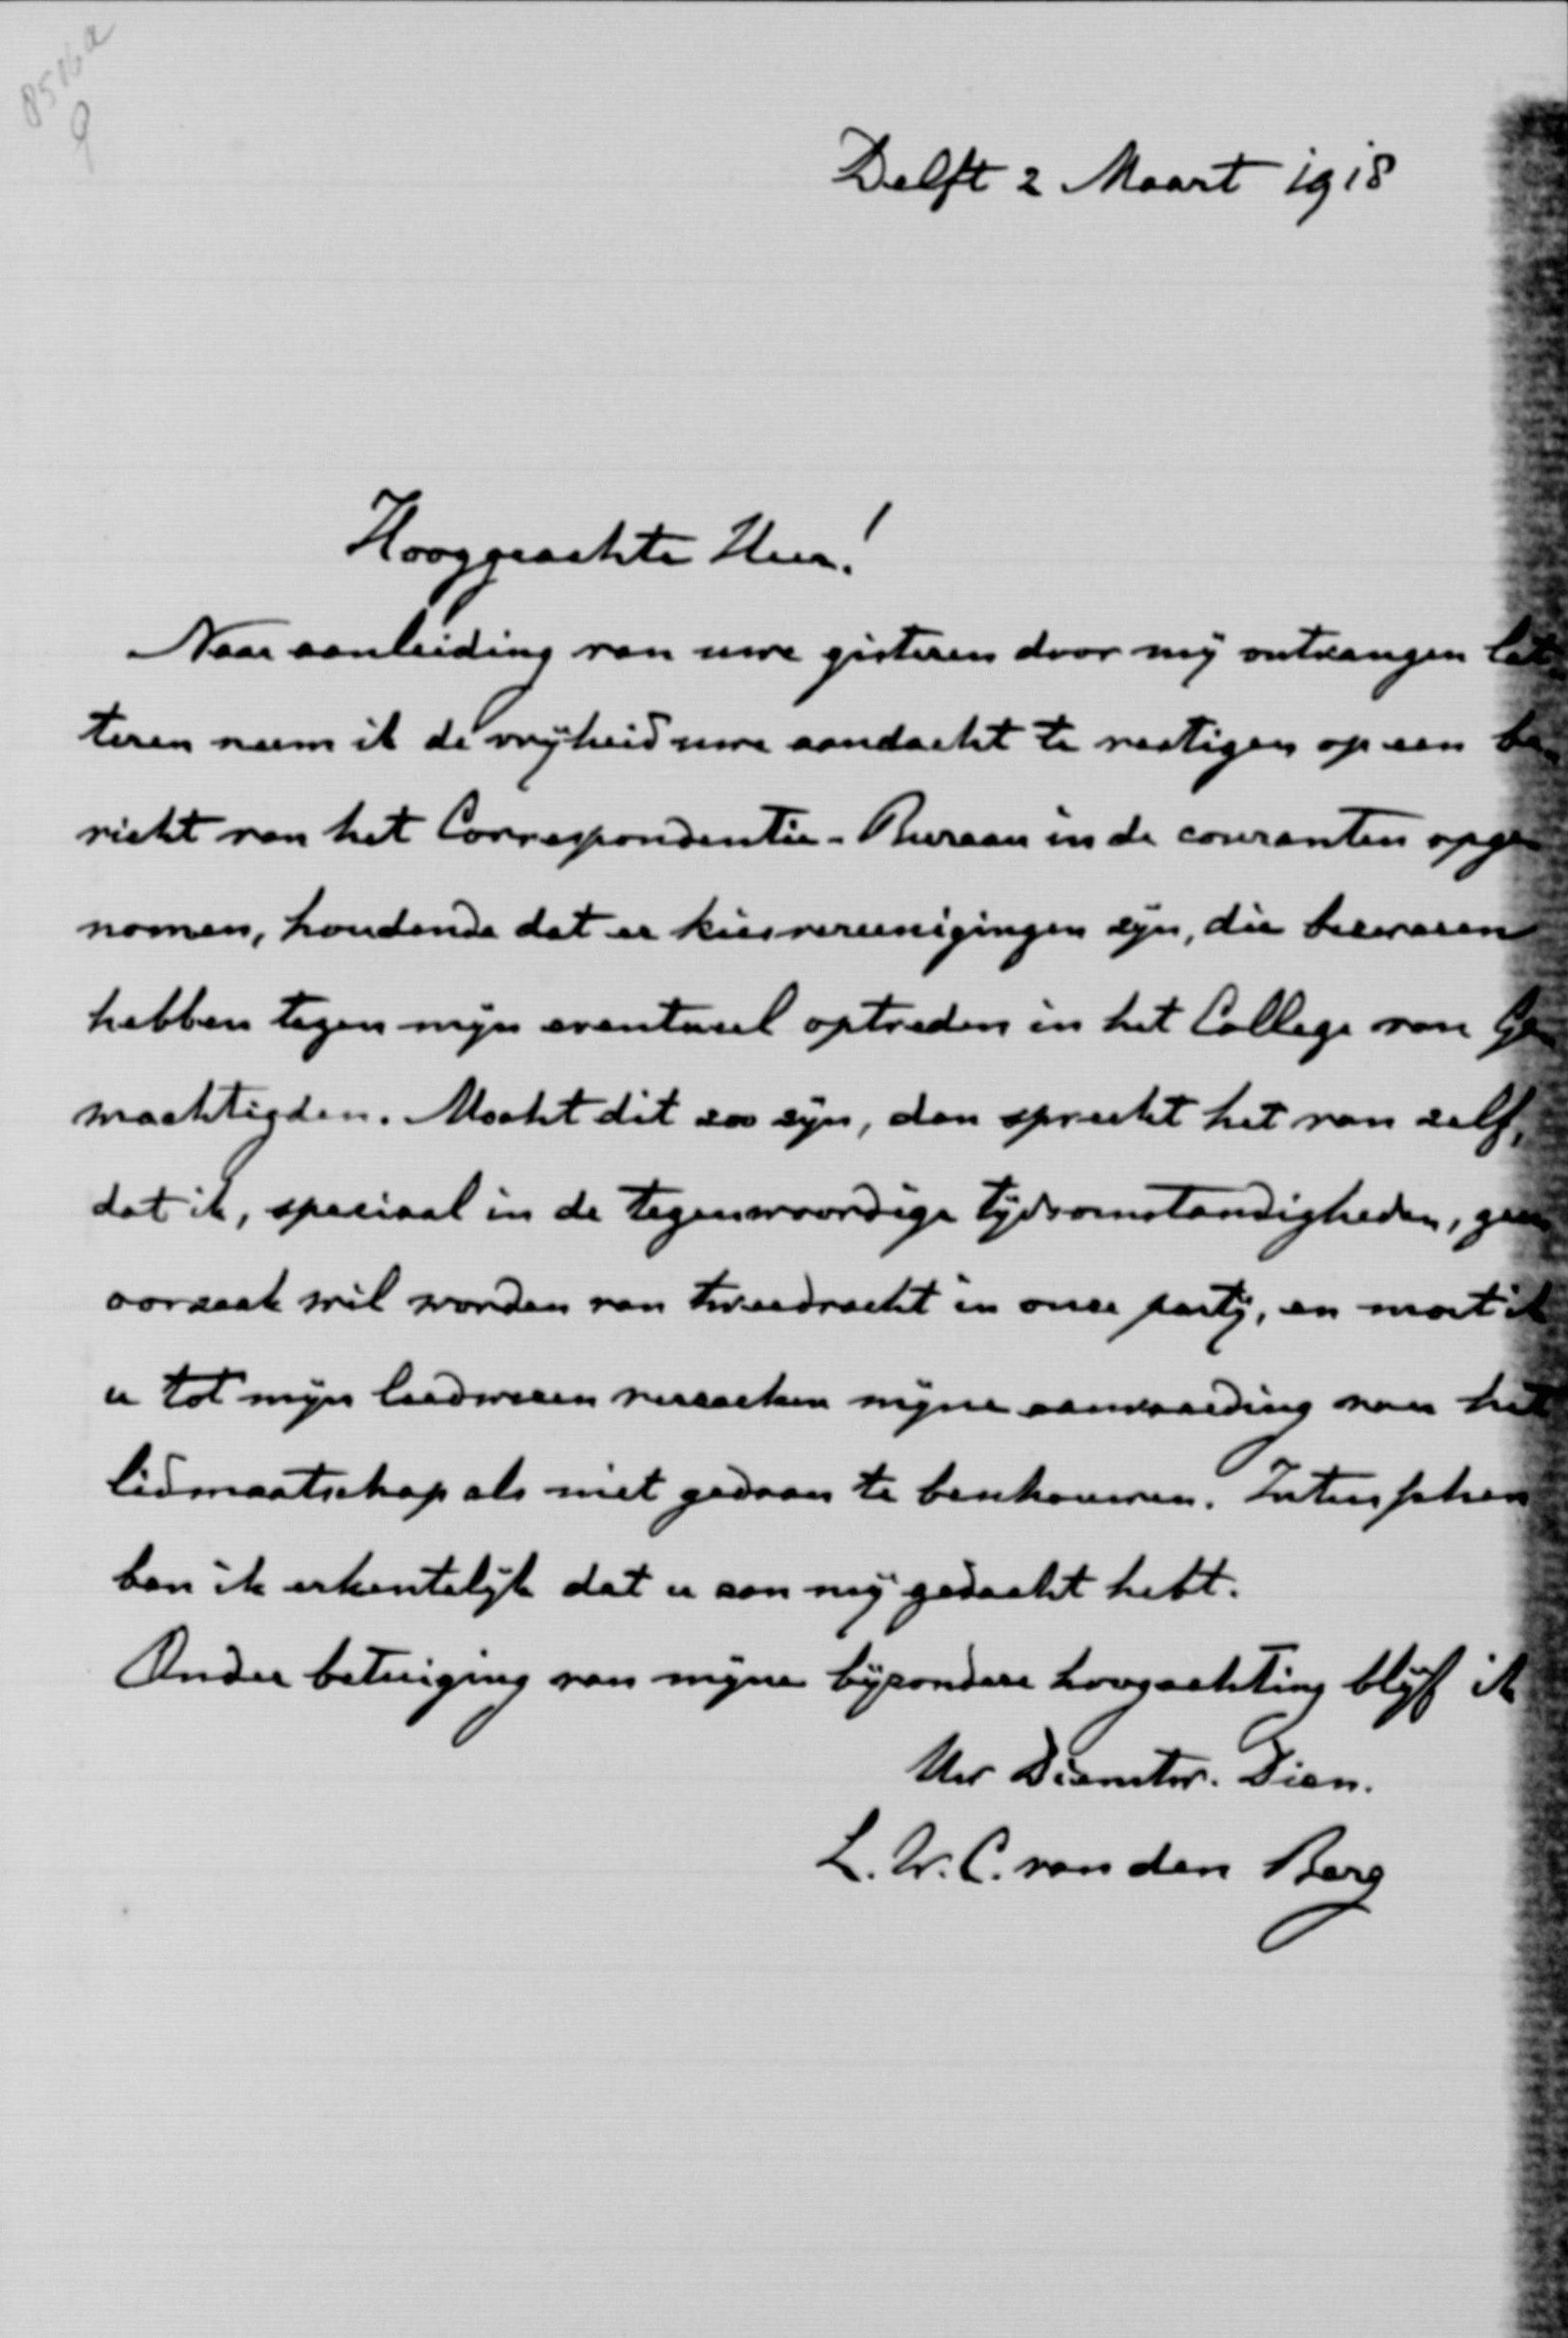 8516a
9
Delft 2 Maart 1918
Hooggeachte Heer!
Naar aanleiding van uwe gisteren door mij ontvangen let
teren neem ik de vrijheid uwe aandacht te vestigen op een be-
richt van het Correspondentie-Bureau in de couranten opge
nomen, houdende dat er kiesvereenigingen zijn, die bezwaren
hebben tegen mijn eventueel optreden in het College van Ge
machtigden. Mocht dit zoo zijn, dan spreekt het van zelf,
dat ik, speciaal in de tegenwoordige tijdsomstandigheden, geen
oorzaak wil worden van tweedracht in onze partij, en moet ik
u tot mijn leedwezen verzoeken mijne aanvaarding van het
lidmaatschap als niet gedaan te beschouwen. Intusschen
ben ik erkentelijk dat u aan mij gedacht hebt.
Onder betuiging van mijne bijzondere hoogachting blijf ik
Uw Dienstw. Dien.
L. W. C. van den Berg